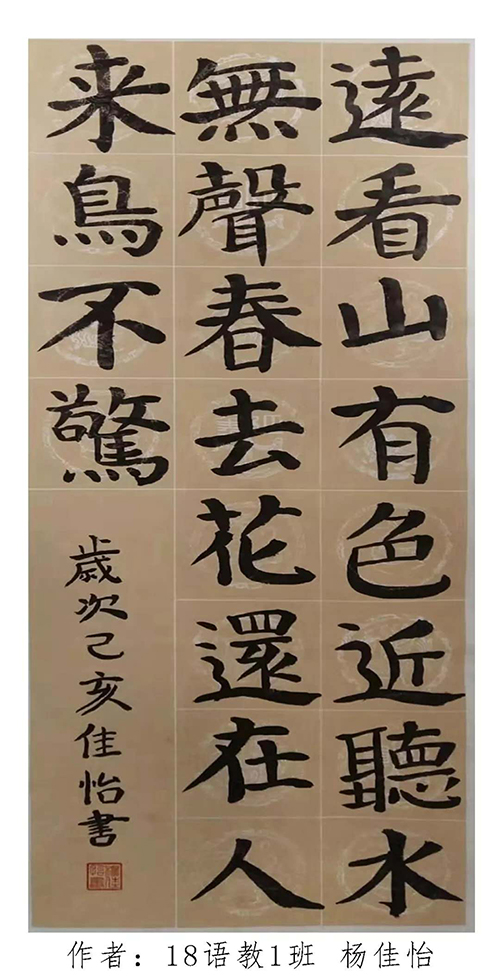 遠看山有色近聽水
無聲春去花還在人
来鳥不驚
歲次己亥佳怡書
作者：18语教1班 杨佳怡